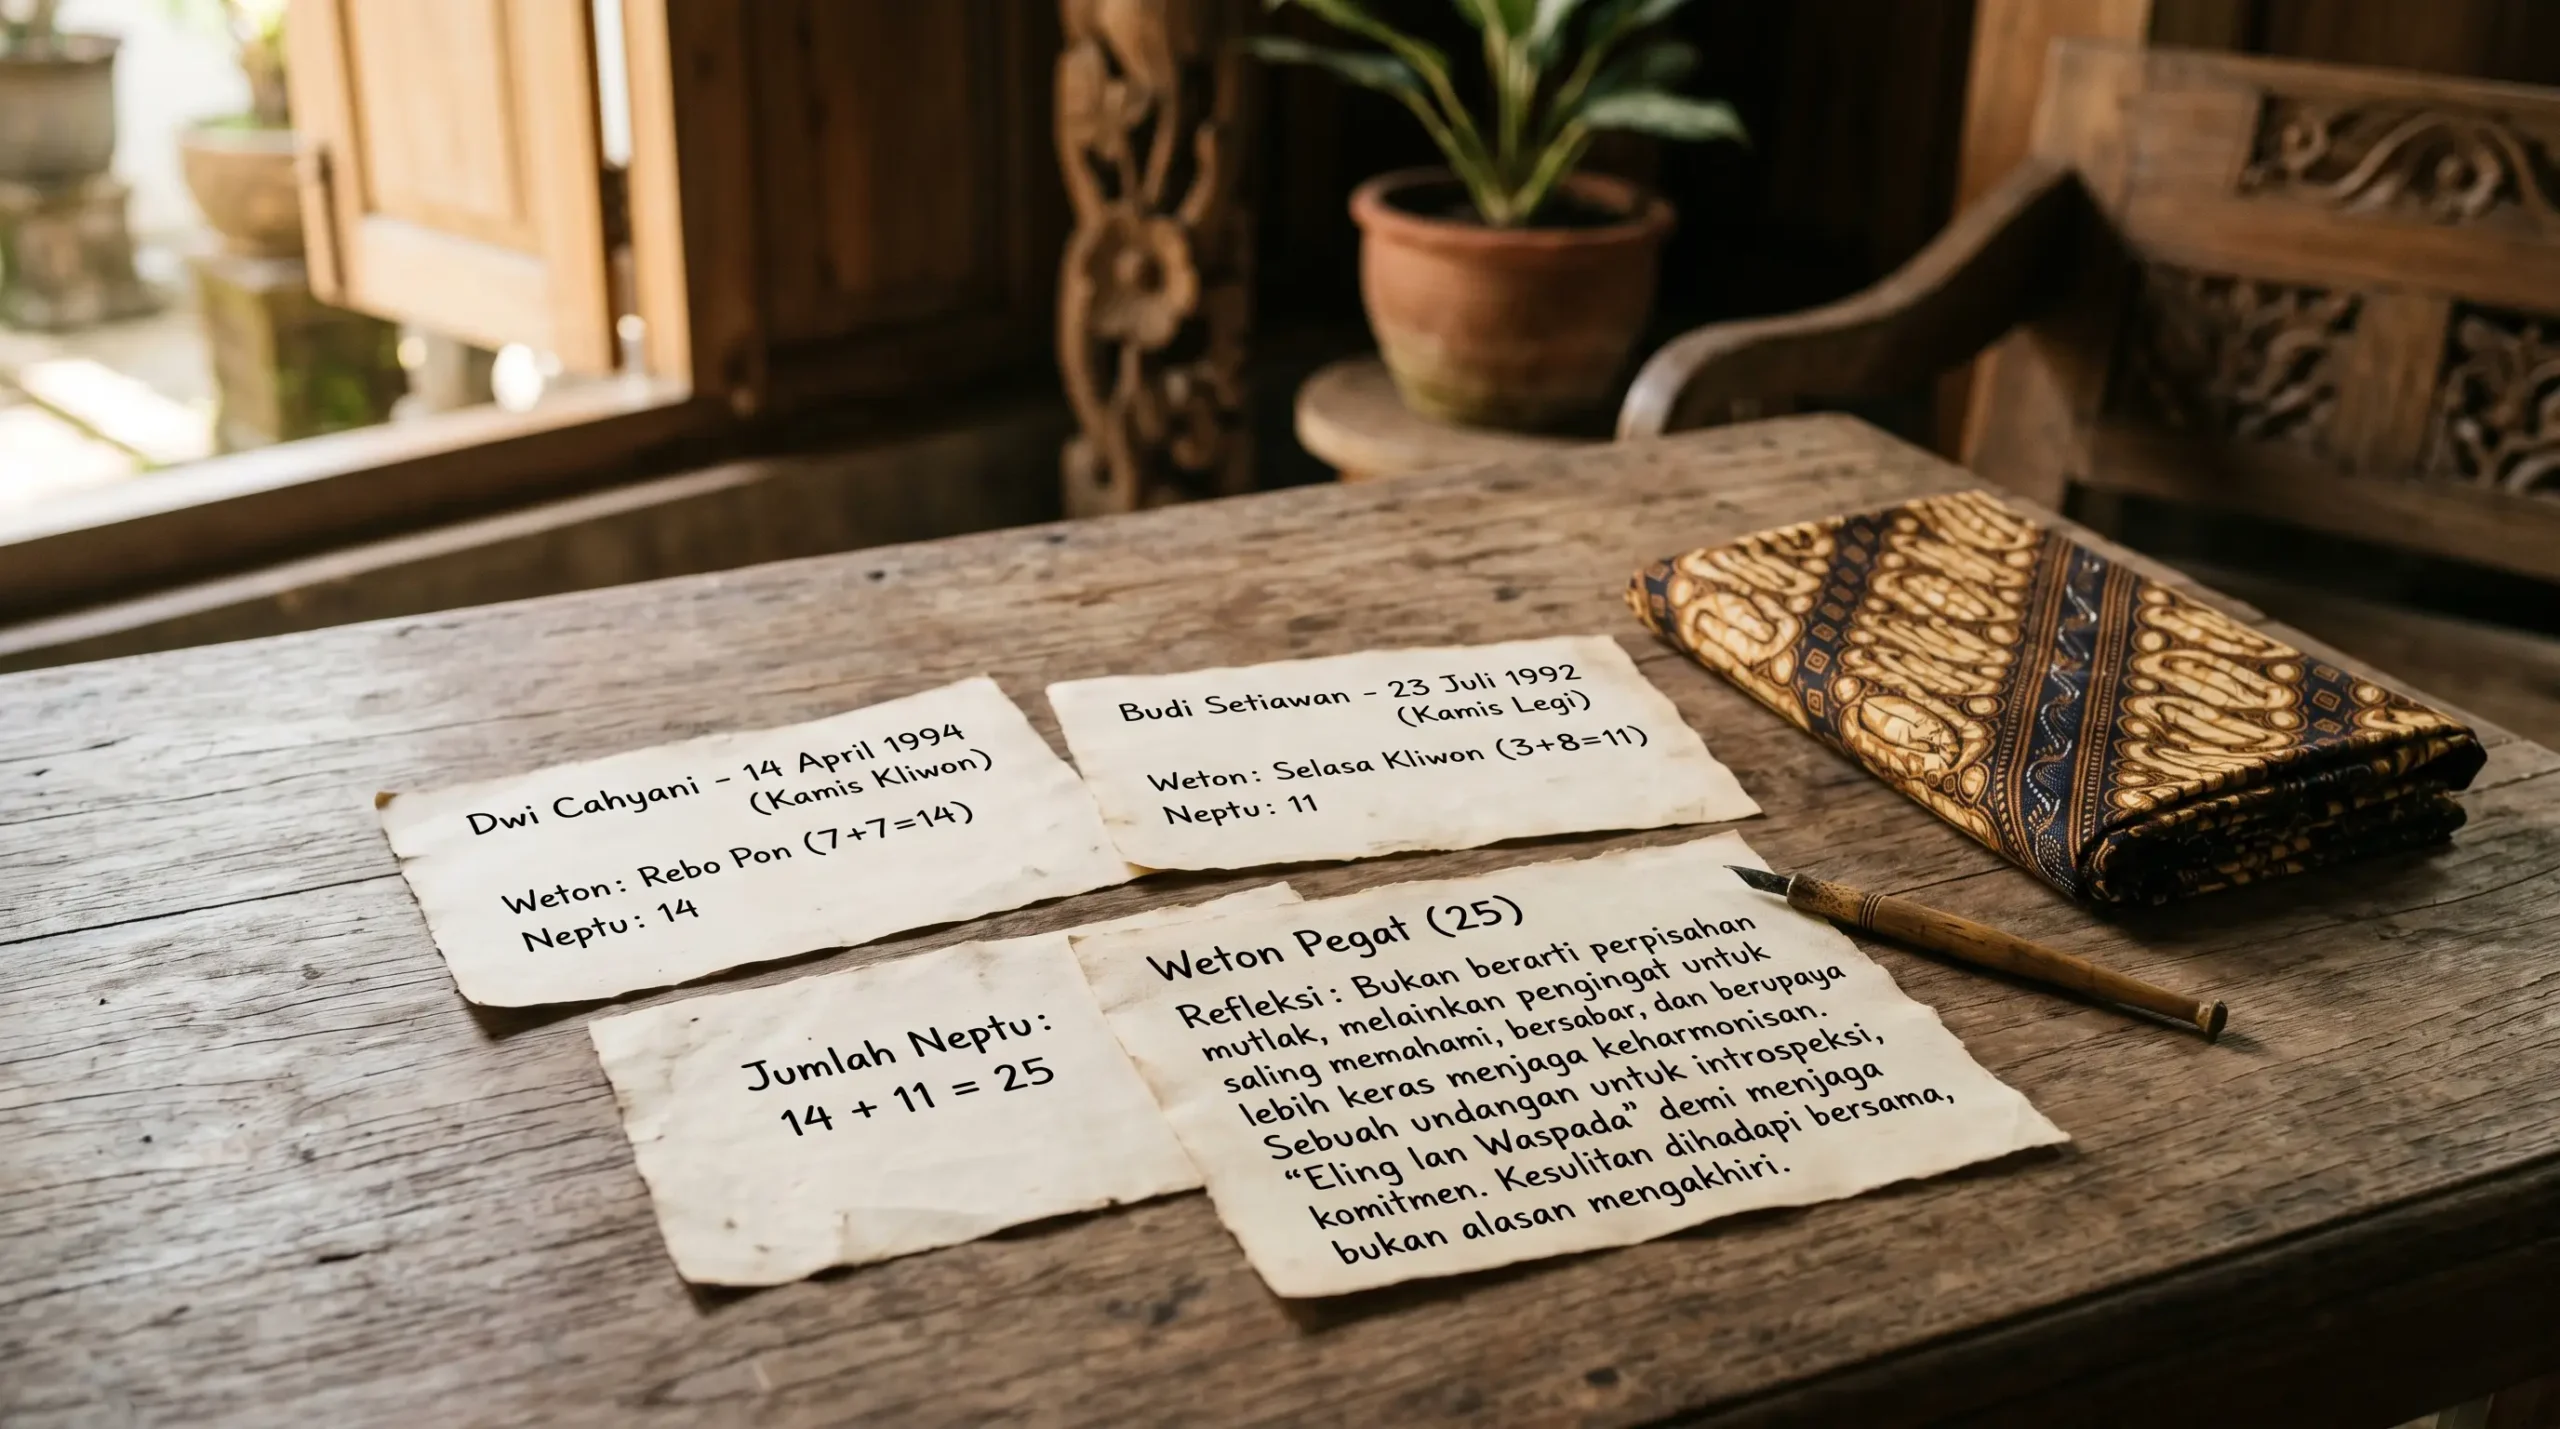 Dwi Cahyani - 14 April 1994
(Kamis Kliwon)
Weton: Rebo Pon (7+7=14)
Neptu: 14
Budi Setiawan - 23 Juli 1992
(Kamis Legi)
Weton: Selasa Kliwon (3+8=11)
Neptu: 11
Jumlah Neptu:
14 + 11 = 25
Weton Pegat (25)
Refleksi: Bukan berarti perpisahan
mutlak, melainkan pengingat untuk
saling memahami, bersabar, dan berupaya
lebih keras menjaga keharmonisan.
Sebuah undangan untuk introspeksi,
“Eling lan Waspada” demi menjaga
komitmen. Kesulitan dihadapi bersama,
bukan alasan mengakhiri.